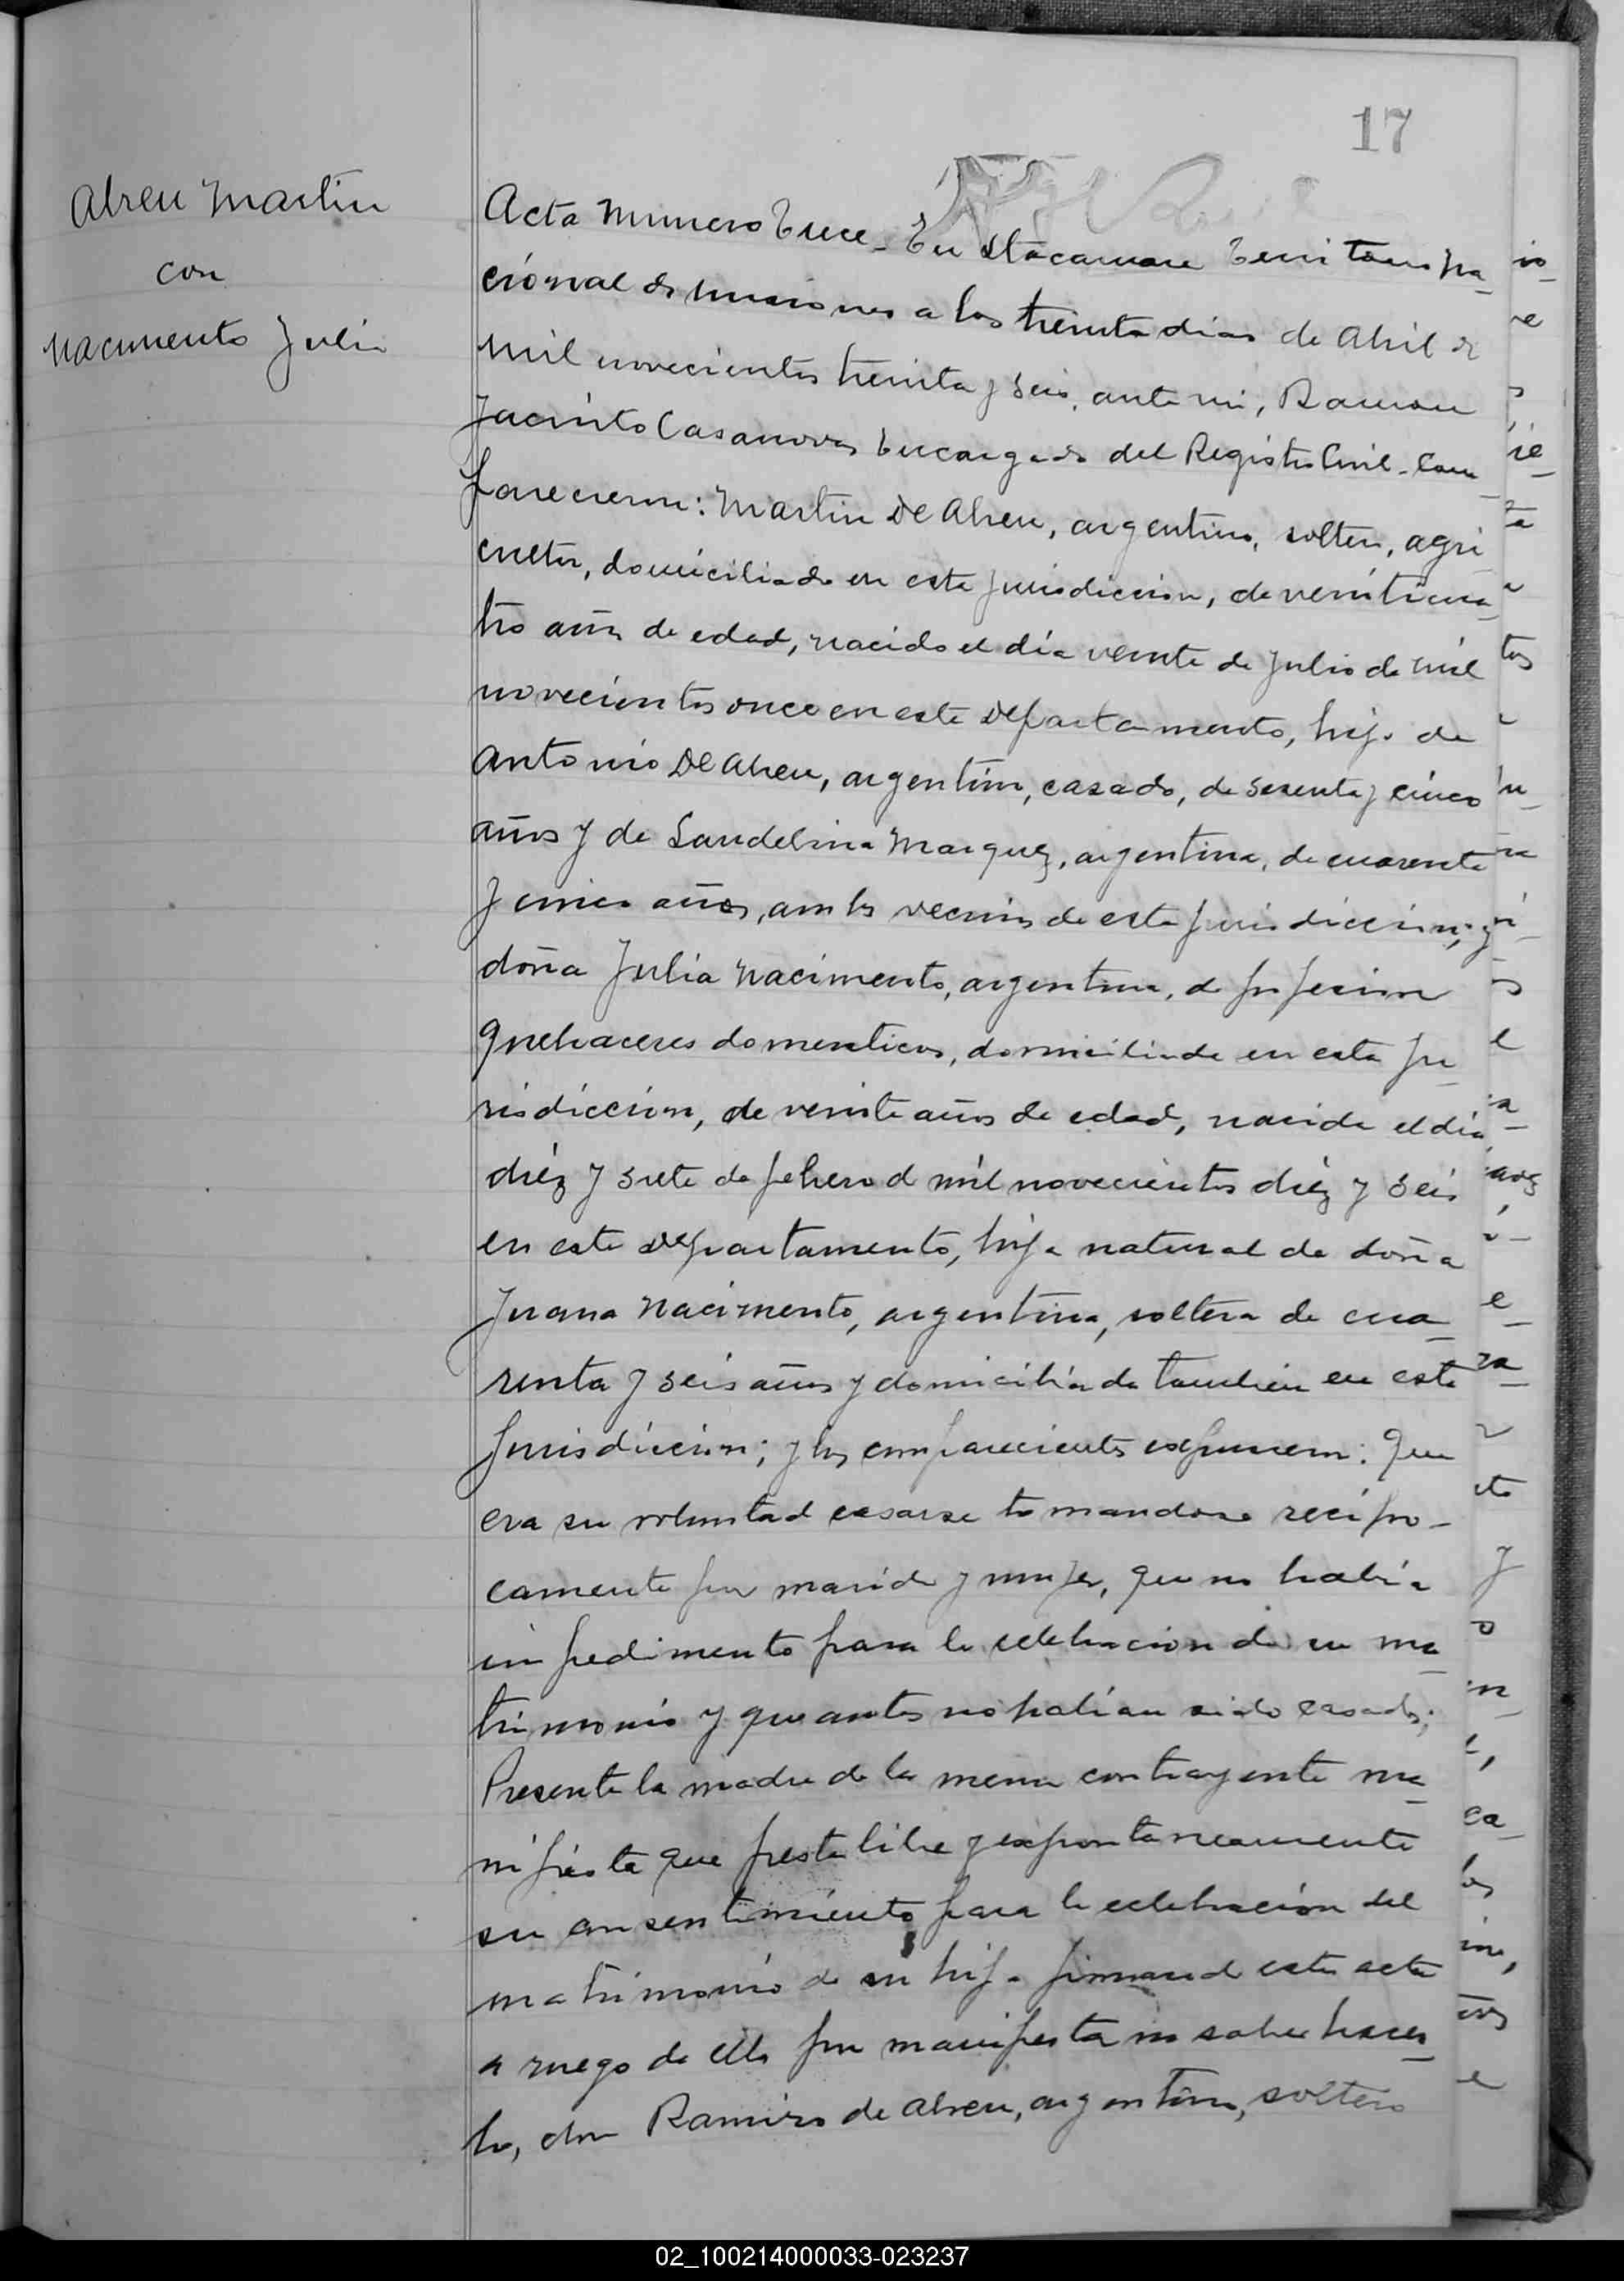 17
Abreu Martin
con
Nacimento Julia
Acta Numero Trece - En Itacaruare Territorio Na_
cional de Misiones a los treinta dias de Abril de
mil novecientos treinta y seis, ante mi, Ramon
Jacinto Casanovas Encargado del Registro Civil - Com_
parecieron: Martin De Abreu, argentino, soltero, agri
cultor, domiciliado en esta jurisdiccion, de veinticua_
tro años de edad, nacido el día veinte de Julio de mil
novecientos once en este Departamento, hijo de
Antonio De Abreu, argentino, casado, de sesenta y cinco
años y de Laudelina Marquez, argentina, de cuarenta
y cinco años, ambos vecinos de esta jurisdiccion; y
doña Julia Nacimento, argentina, de profesion
quehaceres domesticos, domiciliada en esta ju_
risdiccion, de veinte años de edad, nacida el día
diéz y siete de febrero de mil novecientos diéz y seis
en este Departamento, hija natural de doña
Juana Nacimento, argentina, soltera de cua_
renta y seis años y domiciliada tambien en esta
jurisdiccion; y los comparecientes expusieron: Que
era su voluntad casarse tomandose recipro-
camente por marido y mujer, que no había
impedimento para la celebracion de su ma_
trimonio y que antes no habían sido casados;
Presente la madre de la menor contrayente ma_
nifiesta que presta libre y expontaneamente
su consentimiento para la celebración del
matrimonio de su hija firmando esta acta
a ruego de ella por manifestar no saber hacer_
lo, don Ramiro de Abreu, argentino, soltero
02_100214000033-023237